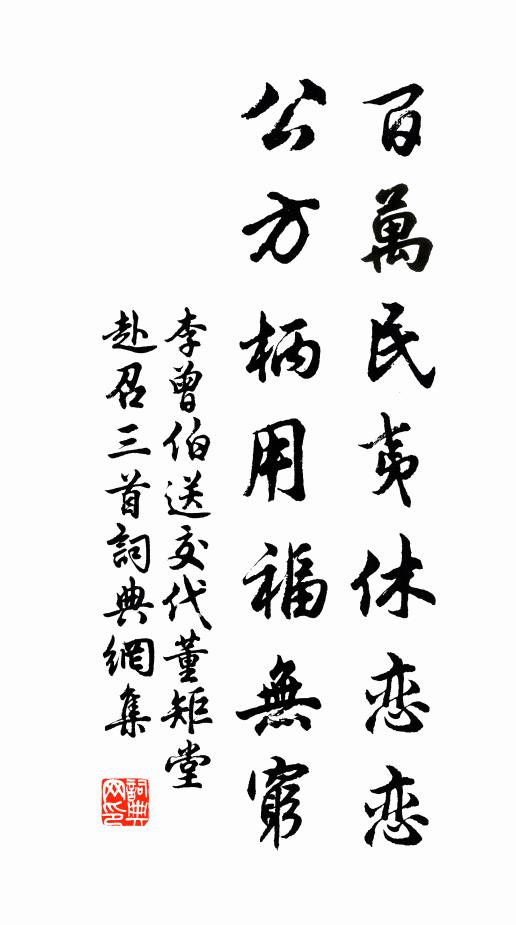 百萬民夷休恋恋
公方柄用福無窮
李曾伯送交代董矩堂
赴召三首詞典網集
詞典
网